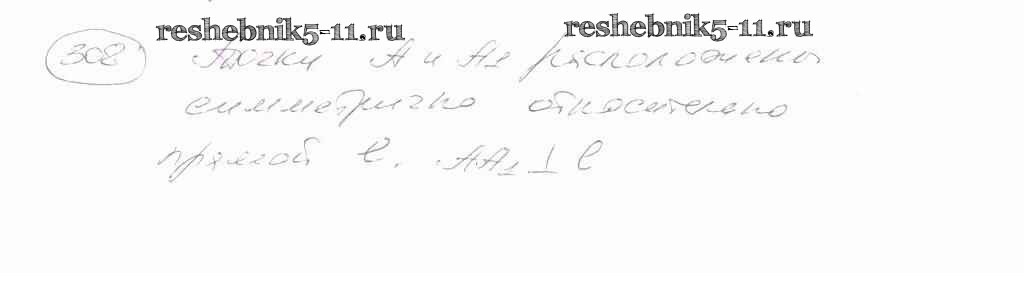 reshebnik5-11.ru reshebnik5-11.ru
308 Точки A и A1 расположены
симметрично относительно
прямой l. AA1 ⊥ l